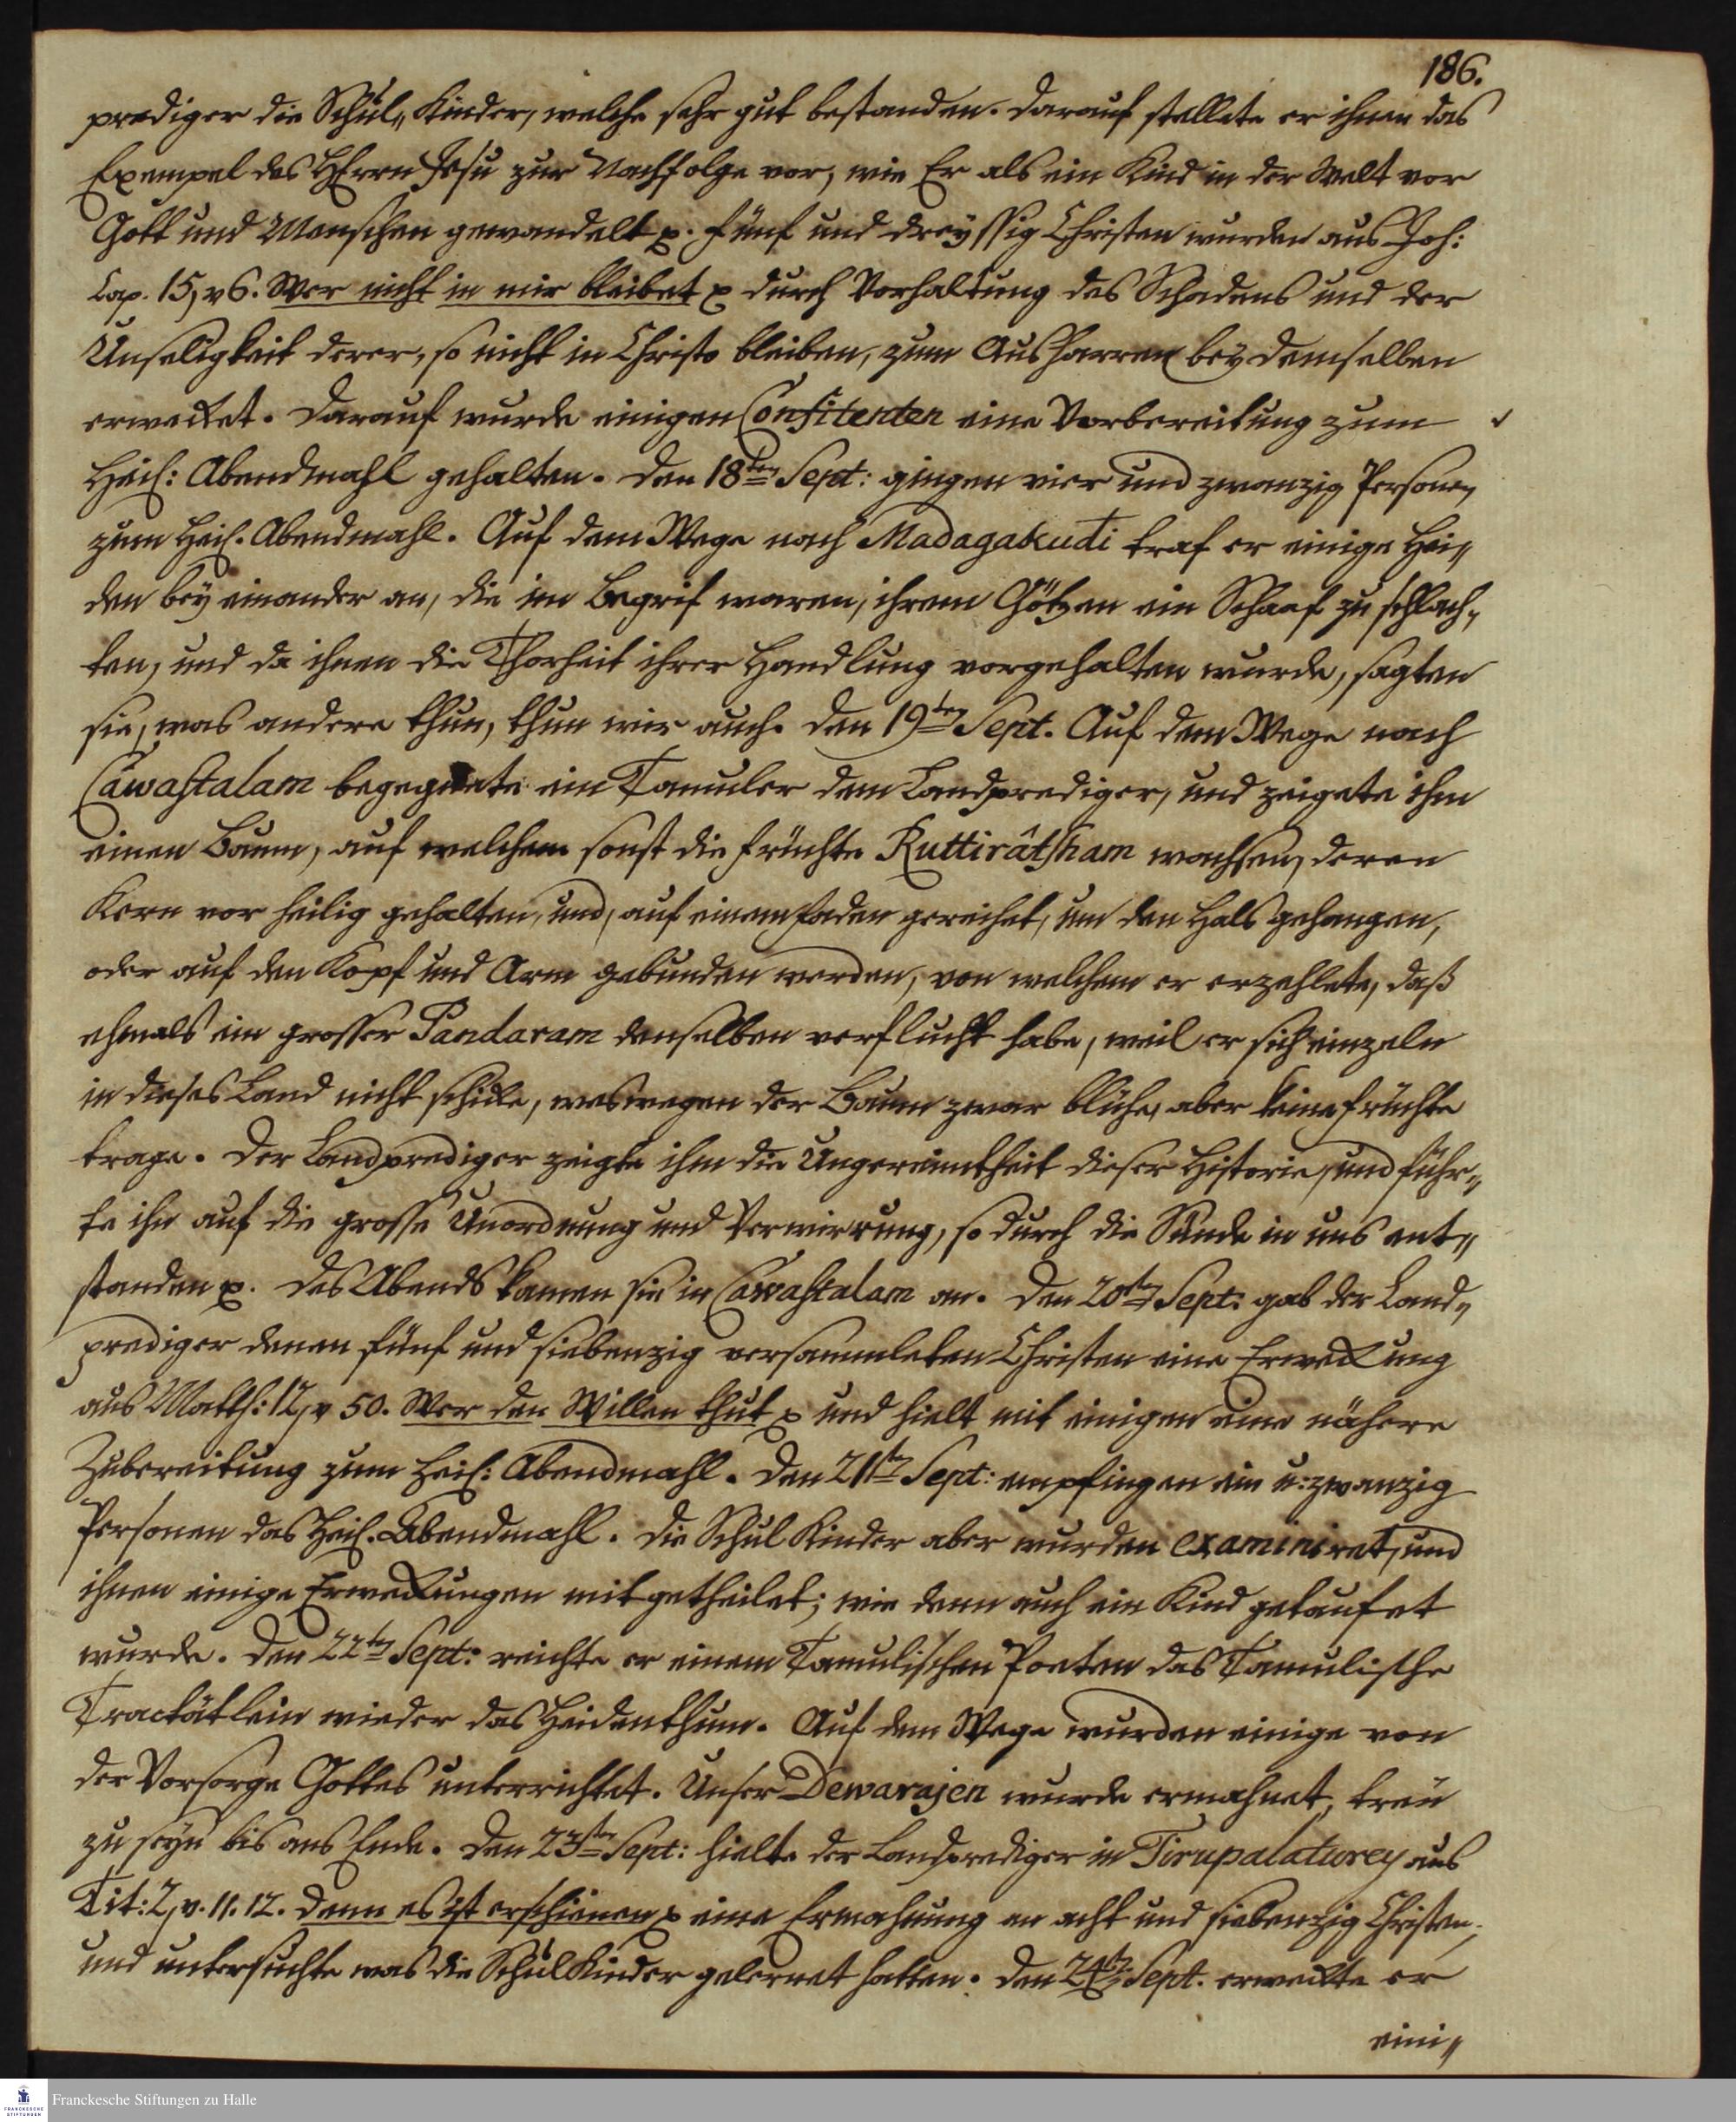 186.
prediger die Schul„Kinder, welche sehr gut bestanden. Darauf stellete er ihnen das
Exempel des HErrn Jesu zur Nachfolge vor, wie Er als ein Kind in der Welt vor
Gott und Menschen gewandelt p. Fünf und dreyssig Christen wurden aus Joh:
Cap. 15, v 6. Wer nicht in mir bleibet p durch Vorhaltung des Schadens und der
Unseligkeit derer, so nicht in Christo bleiben, zum Ausharren bey demselben
erwecket. Darauf wurde einigen Confitenten eine Vorbereitung zum
Heil: Abendmahl gehalten. Den 18ten Sept: gingen vier und zwanzig Personen
zum Heil. Abendmahl. Auf dem Wege nach Madagakudi traf er einige Hei„
den bey einander an, die im Begrif waren, ihrem Götzen ein Schaaf zu schlach„
ten, und da ihnen die Thorheit ihrer Handlung vorgehalten wurde, sagten
sie, was andere thun, thun wir auch. Den 19ten Sept. Auf dem Wege nach
Cawastalam begegnete ein Tamuler dem Landprediger, und zeigete ihm
einen Baum, auf welchem sonst die Früchte Ruttirâtsham wachsen, deren
Kern vor heilig gehalten, und, auf einem Faden gereihet, um den Hals gehangen,
oder auf den Kopf und Arm gebunden werden, von welchem er erzehlete, daß
ehmals ein grosser Pandaram denselben verflucht habe, weil er sich einzeln
in dieses Land nicht schicke, weswegen der Baum zwar blühe, aber keine Früchte
trage. Der Landprediger zeigte ihm die Ungereimtheit dieser Historie, und führ„
te ihn auf die grosse Unordnung und Verwirrung, so durch die Sünde in uns ent„
standen p. Des Abends kamen sie in Cawastalam an. Den 20ten Sept: gab der Land„
prediger denen fünf und siebenzig versammleten Christen eine Erweckung
aus Matth: 12, v 50. Wer den Willen thut p und hielt mit einigen eine nähere
Zubereitung zum Heil: Abendmahl. Den 21ten Sept: empfingen ein u: zwanzig
Personen das Heil. Abendmahl. Die Schul Kinder aber wurden examiniret, und
ihnen einige Erweckungen mitgetheilet; wie denn auch ein Kind getaufet
wurde. Den 22ten Sept: reichte er einem Tamulischen Poeten das Tamulische
Tractätlein wieder das Heidenthum. Auf dem Wege wurden einige von
der Vorsorge Gottes unterrichtet. Unser Dewarajen wurde ermahnet, treu
zu seyn bis ans Ende. Den 23ten Sept: hielte der Landprediger in Tirupalaturey aus
Tit: 2, v. 11. 12. Denn es ist erschienen p eine Ermahnung an acht und siebenzig Christen,
und untersuchte was die Schul Kinder gelernet hatten. Den 24ten Sept. erweckte er
eini„
Franckesche Stiftungen zu Halle
FRANCKESCHE
STIFTUNGEN